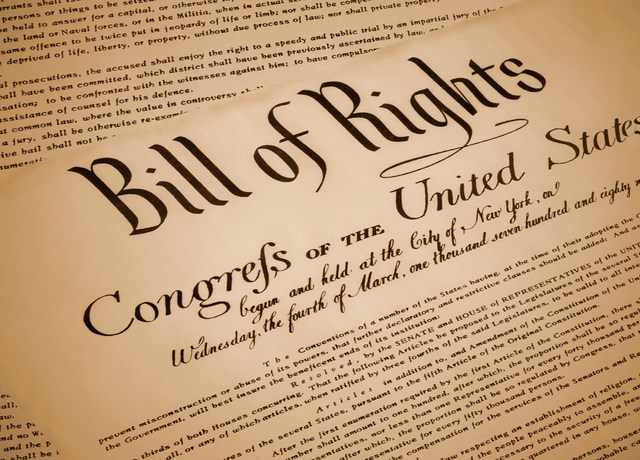 persons or things to be seized.
be held to answer for a capital, or otherwise
the land or Naval forces, or in the Militia, when in actual
same offence to be twice put in jeopardy of life or limb; nor shall be
deprived of life, liberty, or property, without due process of law; nor shall private property
al prosecutions, the accused shall enjoy the right to a speedy and public trial by an impartial jury of the
all have been committed, which district shall have been previously ascertained by law,
sation; to be confronted with the witnesses against him; to have
ssistance of counsel for his defence.
common law, where the value in controversy
a jury, shall be otherwise
ive bail shall not be
Bill of Rights
Congreſs OF THE United States
begun and held at the City of New York, on
Wednesday, the fourth of March, one thousand seven hundred and eighty
The Conventions of a number of the States having, at the time of their adopting the
prevent misconstruction or abuse of its powers, that further declaratory and restrictive clauses should be added: And
the Government, will best insure the beneficent ends of its institution:
Resolved, by the SENATE and HOUSE of REPRESENTATIVES of the
thirds of both Houses concurring, That the following Articles be proposed to the Legislatures of the several
all, or any of which articles, when ratified by three fourths of the said Legislatures, to be valid to all
Articles in addition to, and Amendment of the Constitution of the
of the several States, pursuant to the fifth Article of the Original Constitution.
After the first enumeration required by the first Article of the Constitution, there
number shall amount to one hundred, after which, the proportion shall be so
nor less than one Representative for every forty thousand
after which, the proportion shall be so regulated by Congress, that
for every fifty thousand persons.
compensation for the services of the Senators and
law respecting an establishment of religion,
of the people peaceably to assemble,
to the security of a
quartered in any house